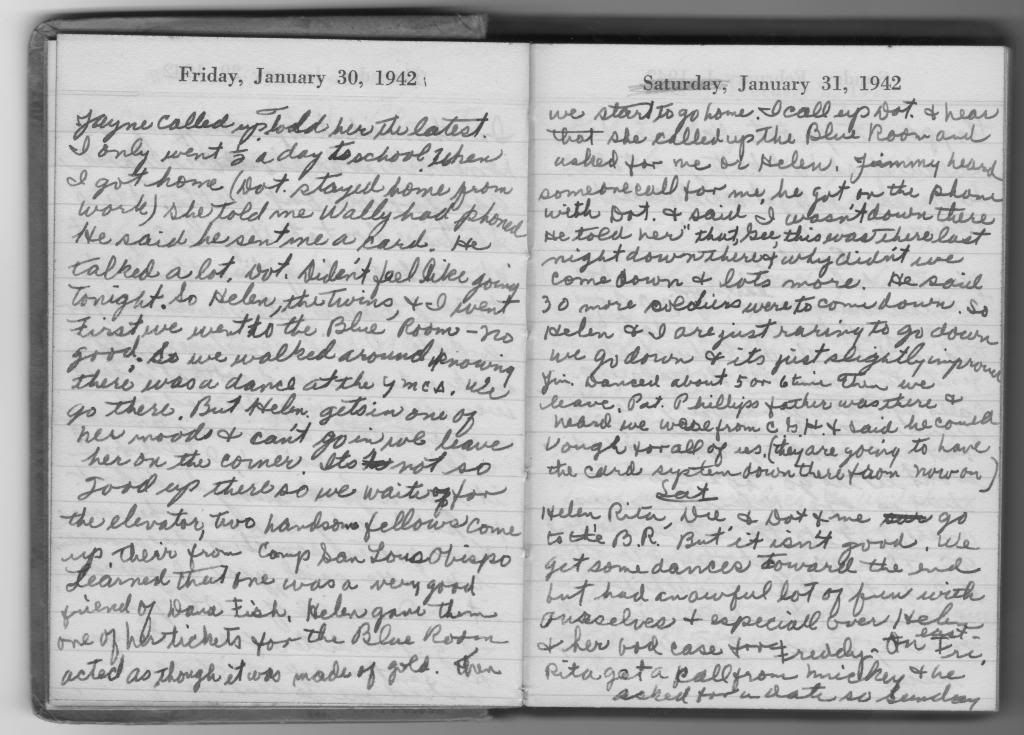 Friday, January 30, 1942
Jayne called up. Todd her the latest.
I only went ½ a day to school. When
I got home (Dot. stayed home from
work) she told me Wally had phoned
He said he sent me a card. He
talked a lot. Dot. Dident feel like going
tonight. So Helen, the twins, & I went
First we went to the Blue Room - no
good. So we walked around, knowing
there was a dance at the Ymca. We
go there. But Helen gets in one of
her moods & can't go in we leave
her on the corner. Its not so
good up there so we wait for
the elevator, two handsom fellows come
up their from Camp San Lous Obispo
Learned that one was a very good
friend of Dara Fish. Helen gave them
one of her tickets for the Blue Room
acted as though it was made of gold. Then
Saturday, January 31, 1942
we start to go home. I call up Dot. & hear
that she called up the Blue Room and
asked for me or Helen. Jimmy heard
someone call for me, he got on the phone
with Dot. & said I wasn't down there
He told her "that, Gee, this was there last
night down there & why didn't we
come down & lots more. He said
30 more soldiers were to come down. So
Helen & I are just raring to go down
we go down & its just slightly improved
Jim. Danced about 5 or 6 time Then we
leave. Pat. Phillips father was there &
heard we were from C.G.H. & said he could
Vough for all of us, (they are going to have
the card system down there from now on)
Sat
Helen Rita, Die, & Dot & me go
to the B.R. But it isn't good. We
get some dances toward the end
but had an awful lot of fun with
ourselves & especiall over Helen
& her bad case for Freddy. On last Fri.
Rita get a call from Mickey & he
asked for a date so Sunday